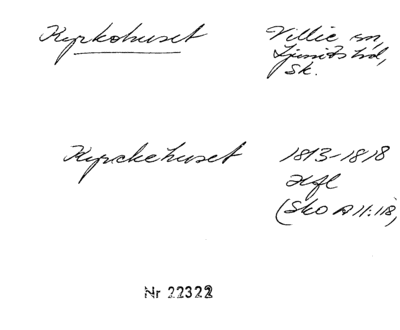 Kyrkohuset Villie sn,
Ljunits hd,
Sk.
Kyrckehuset 1813-1818
Hfl
(SkO A II:118)
Nr 22322